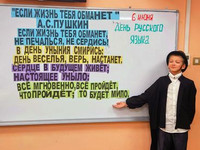 "ЕСЛИ ЖИЗНЬ ТЕБЯ ОБМАНЕТ"
А.С.ПУШКИН
ЕСЛИ ЖИЗНЬ ТЕБЯ ОБМАНЕТ,
НЕ ПЕЧАЛЬСЯ, НЕ СЕРДИСЬ!
В ДЕНЬ УНЫНИЯ СМИРИСЬ:
ДЕНЬ ВЕСЕЛЬЯ, ВЕРЬ, НАСТАНЕТ.
СЕРДЦЕ В БУДУЩЕМ ЖИВЁТ;
НАСТОЯЩЕЕ УНЫЛО:
ВСЁ МГНОВЕННО, ВСЁ ПРОЙДЁТ;
ЧТО ПРОЙДЁТ, ТО БУДЕТ МИЛО.
6 ИЮНЯ
"ДЕНЬ РУССКОГО
ЯЗЫКА"